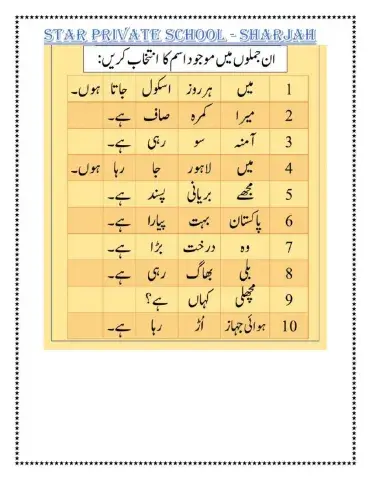 STAR PRIVATE SCHOOL - SHARJAH
ان جملوں میں موجود اسم کا انتخاب کریں:
1 میں ہر روز اسکول جاتا ہوں۔
2 میرا کمرہ صاف ہے۔
3 آمنہ سو رہی ہے۔
4 میں لاہور جا رہا ہوں۔
5 مجھے بریانی پسند ہے۔
6 پاکستان بہت پیارا ہے۔
7 وہ درخت بڑا ہے۔
8 بلی بھاگ رہی ہے۔
9 مچھلی کہاں ہے؟
10 ہوائی جہاز اُڑ رہا ہے۔